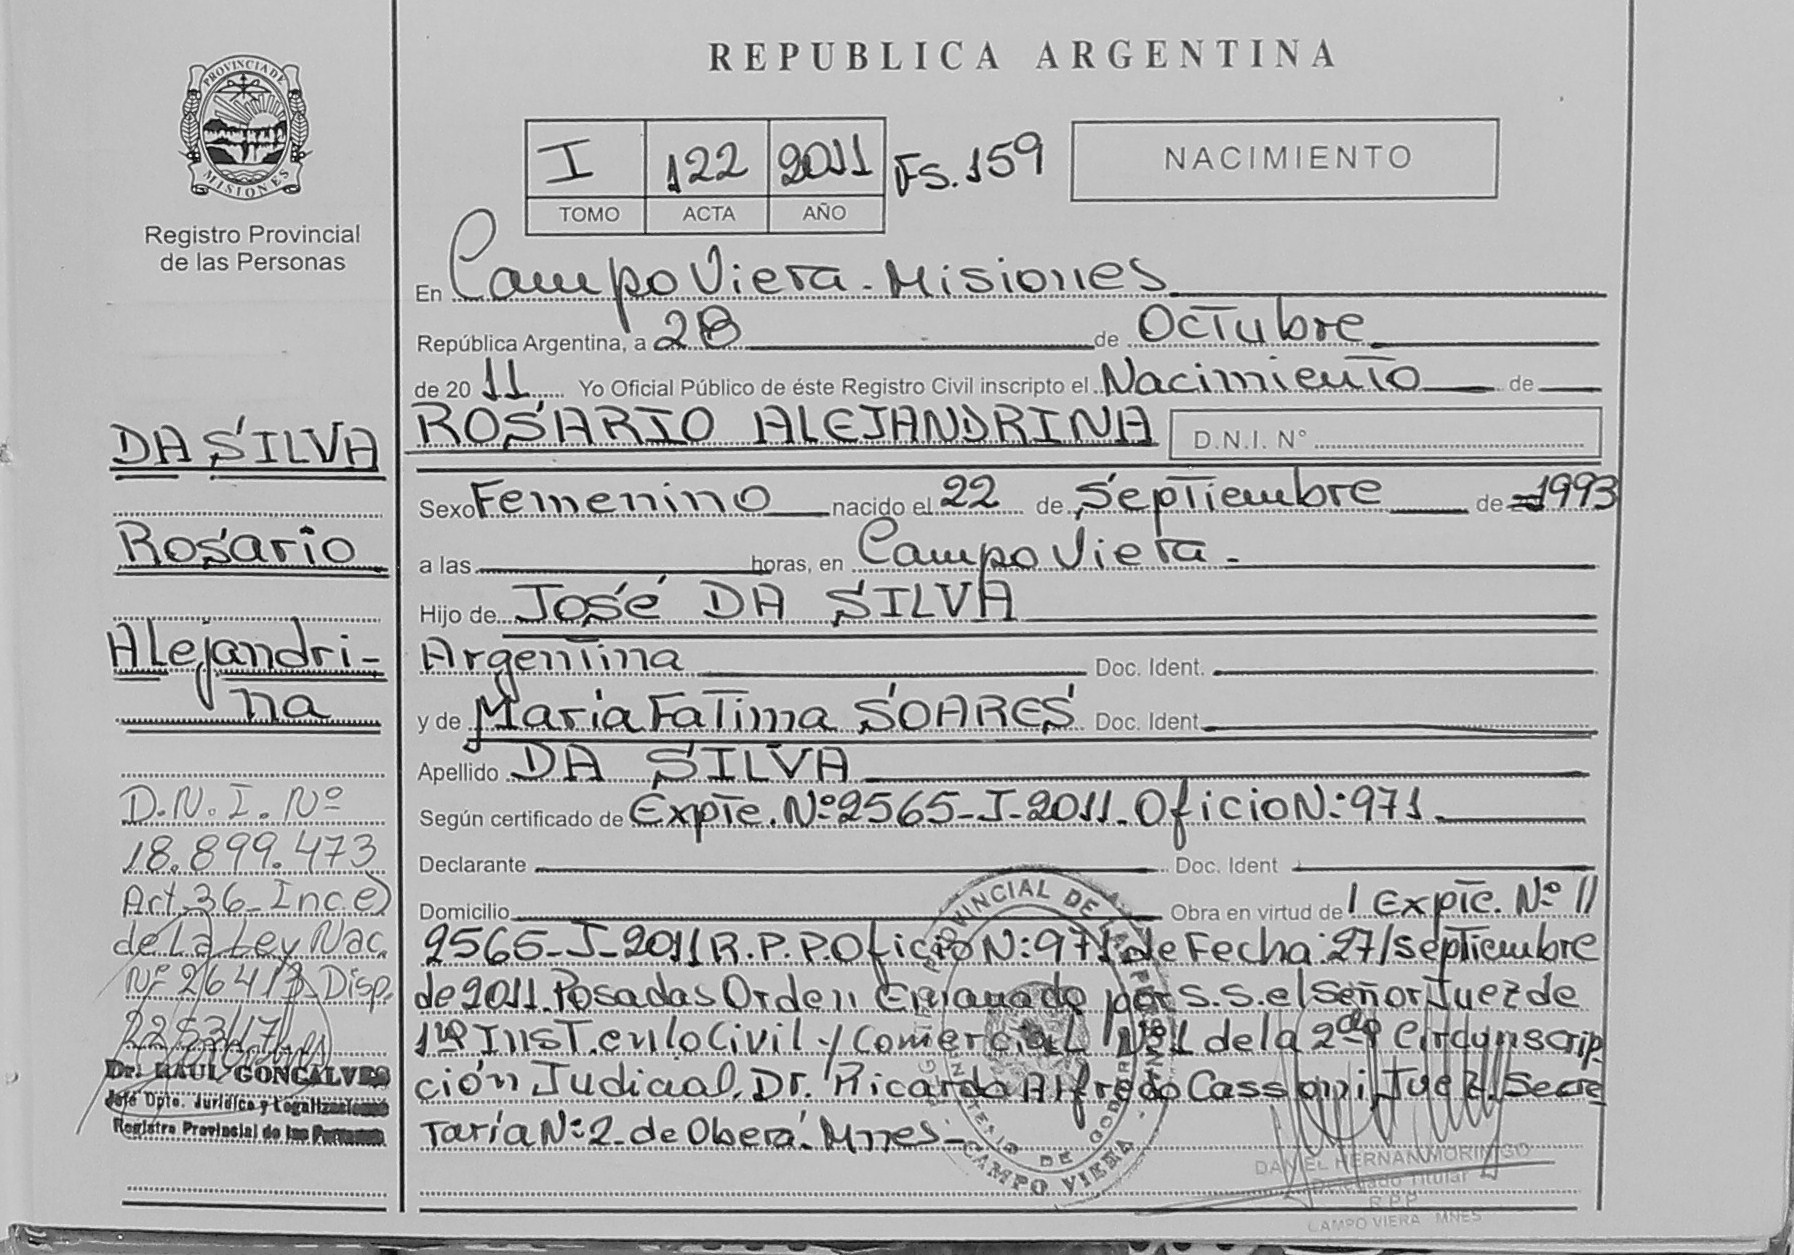 PROVINCIA DE
MISIONES
Registro Provincial
de las Personas
DA SILVA
Rosario
Alejandri-
na
D.N.I. Nº
18.899.473
Art. 36 - Inc e)
de La Ley Nac.
Nº 26413 Disp.
2253/17
Dr. RAUL GONCALVES
Jefe Dpto. Jurídica y Legalizaciones
Registro Provincial de las Personas
REPUBLICA ARGENTINA
I 122 2011 Fs. 159
TOMO ACTA AÑO
NACIMIENTO
En Campo Viera - Misiones
República Argentina, a 28 de Octubre
de 2011 Yo Oficial Público de éste Registro Civil inscripto el Nacimiento de
ROSARIO ALEJANDRINA D.N.I. N°
Sexo Femenino nacido el 22 de Septiembre de 1993
a las horas, en Campo Viera -
Hijo de José DA SILVA
Argentina Doc. Ident.
y de María Fatima SOARES Doc. Ident
Apellido DA SILVA
Según certificado de Expte. Nº 2565-J-2011. Oficio N: 971.
Declarante Doc. Ident
Domicilio Obra en virtud de Expte. Nº //
2565-J-2011 R.P.P. Oficio N: 971 de Fecha: 27/Septiembre
de 2011. Posadas Orden Emanado por S.S. el Señor Juez de
1ra Inst. en lo Civil y Comercial Nº 1 de la 2da Circunscrip-
ción Judicial. Dr. Ricardo Alfredo Cassoni, Juez. Secre
taría Nº 2 - de Oberá - Mnes -
CAMPO VIERA
DANIEL HERNAN MORINIGO
Delegado Titular
R.P.P.
CAMPO VIERA MNES